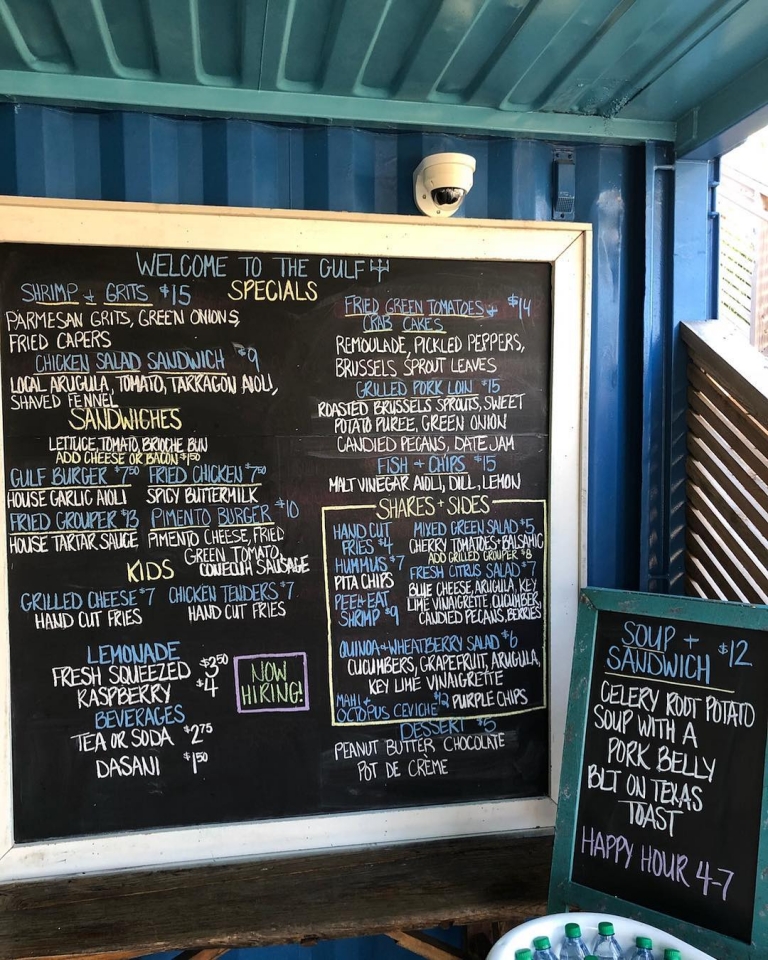 WELCOME TO THE GULF
SPECIALS
SHRIMP + GRITS $15
PARMESAN GRITS, GREEN ONIONS,
FRIED CAPERS
CHICKEN SALAD SANDWICH $9
LOCAL ARUGULA, TOMATO, TARRAGON AIOLI,
SHAVED FENNEL
SANDWICHES
LETTUCE, TOMATO, BRIOCHE BUN
ADD CHEESE OR BACON $1.50
GULF BURGER $7.50 FRIED CHICKEN $7.50
HOUSE GARLIC AIOLI SPICY BUTTERMILK
FRIED GROUPER $13 PIMENTO BURGER $10
HOUSE TARTAR SAUCE PIMENTO CHEESE, FRIED
GREEN TOMATO,
CONECUH SAUSAGE
KIDS
GRILLED CHEESE $7 CHICKEN TENDERS $7
HAND CUT FRIES HAND CUT FRIES
LEMONADE
FRESH SQUEEZED $2.50
RASPBERRY $4
BEVERAGES
TEA OR SODA $2.75
DASANI $1.50
NOW
HIRING!
FRIED GREEN TOMATOES + $14
CRAB CAKES
REMOULADE, PICKLED PEPPERS,
BRUSSELS SPROUT LEAVES
GRILLED PORK LOIN $15
ROASTED BRUSSELS SPROUTS, SWEET
POTATO PUREE, GREEN ONION
CANDIED PECANS, DATE JAM
FISH + CHIPS $15
MALT VINEGAR AIOLI, DILL, LEMON
SHARES + SIDES
HAND CUT
FRIES $4
HUMMUS $7
PITA CHIPS
PEEL+EAT
SHRIMP $9
MIXED GREEN SALAD $5
CHERRY TOMATOES+BALSAMIC
ADD GRILLED GROUPER $8
FRESH CITRUS SALAD $7
BLUE CHEESE, ARUGULA, KEY
LIME VINAIGRETTE CUCUMBER,
CANDIED PECANS, BERRIES
QUINOA+WHEATBERRY SALAD $6
CUCUMBERS, GRAPEFRUIT, ARUGULA,
KEY LIME VINAIGRETTE
MAHI +
OCTOPUS CEVICHE $12 PURPLE CHIPS
DESSERT $5
PEANUT BUTTER CHOCOLATE
POT DE CRÈME
SOUP +
SANDWICH $12
CELERY ROOT POTATO
SOUP WITH A
PORK BELLY
BLT ON TEXAS
TOAST
HAPPY HOUR 4-7